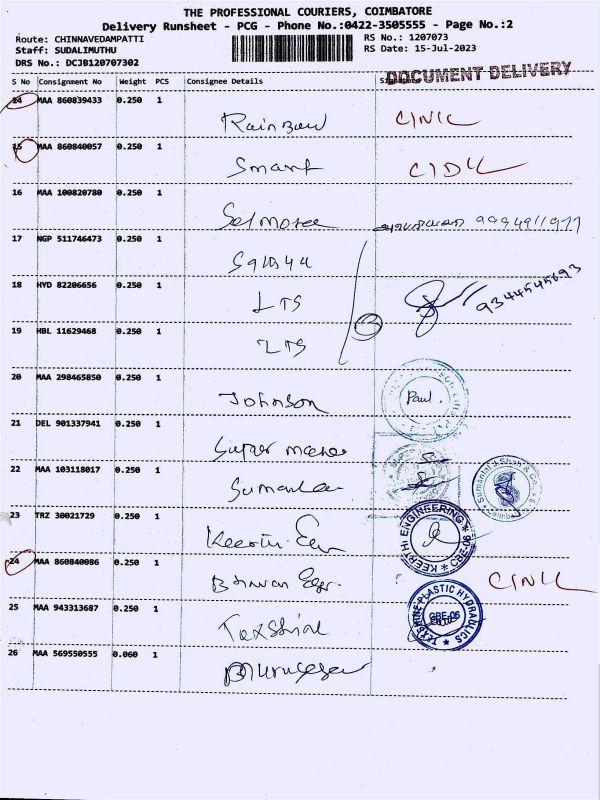 THE PROFESSIONAL COURIERS, COIMBATORE
Delivery Runsheet - PCG - Phone No.:0422-3505555 - Page No.:2
Route: CHINNAVEDAMPATTI RS No.: 1207073
Staff: SUDALIMUTHU RS Date: 15-Jul-2023
DRS No.: DCJB120707302
DOCUMENT DELIVERY
S No Consignment No Weight PCS Consignee Details
14 MAA 860839433 0.250 1
Rainbow
15 MAA 860840057 0.250 1
Smart
16 MAA 100820780 0.250 1
9994911977
17 NGP 511746473 0.250 1
18 HYD 82206656 0.250 1
LTS 9344545693
19 HBL 11629468 0.250 1
LTS
20 MAA 298465850 0.250 1
Johnson Paul.
21 DEL 901337941 0.250 1
Super
22 MAA 103118017 0.250 1
Sumanlal J Shah & Co
23 TRZ 30021729 0.250 1
KEERTHI ENGINEERING CBE-06
24 MAA 860840086 0.250 1
25 MAA 943313687 0.250 1
TEXSHINE PLASTIC HYDRAULICS CBE-06
26 MAA 569550555 0.060 1
Murugesan